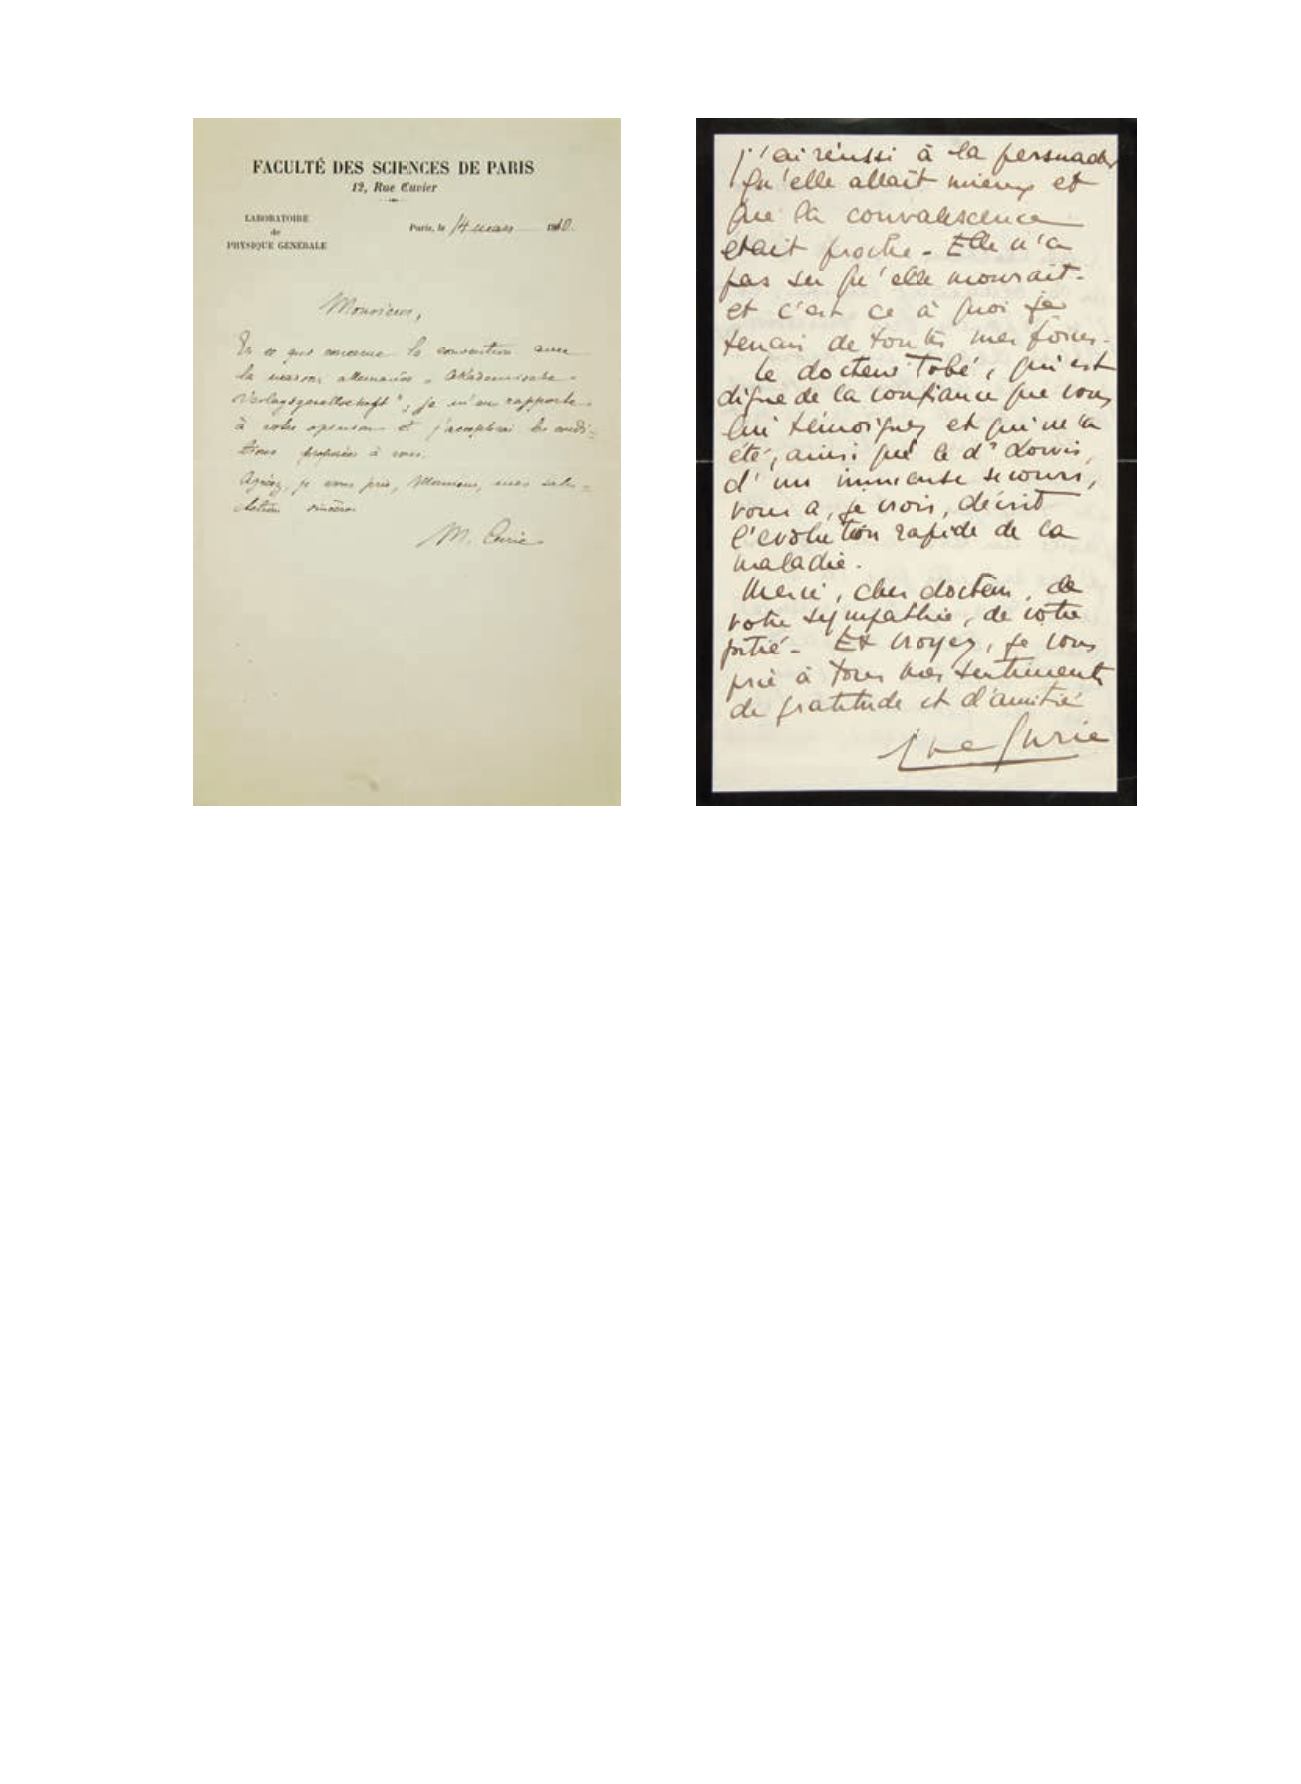 FACULTÉ DES SCIENCES DE PARIS
12, Rue Cuvier
LABORATOIRE
de
PHYSIQUE GÉNÉRALE
Paris, le 14 mars 1910.
Monsieur,
En ce qui concerne la convention avec
la maison allemande „Akademische
Verlagsgesellschaft", je m'en rapporte
à votre opinion et j'accepterai les condi=
tions proposées à vous.
Agréez, je vous prie, Monsieur, mes salu=
tations sincères
M. Curie
j'ai réussi à la persuader
qu'elle allait mieux et
que la convalescence
était proche - Elle n'a
pas su qu'elle mourait -
et c'est ce à quoi je
tenais de toutes mes forces -
Le docteur Tobé, qui est
digne de la confiance que vous
lui témoignez et qui m'a
été, ainsi que le dr Lowis,
d'un immense secours,
vous a, je crois, décrit
l'évolution rapide de la
maladie.
Merci, cher docteur, de
votre sympathie, de votre
pitié - Et croyez, je vous
prie à tous mes sentiments
de gratitude et d'amitié
Eve Curie